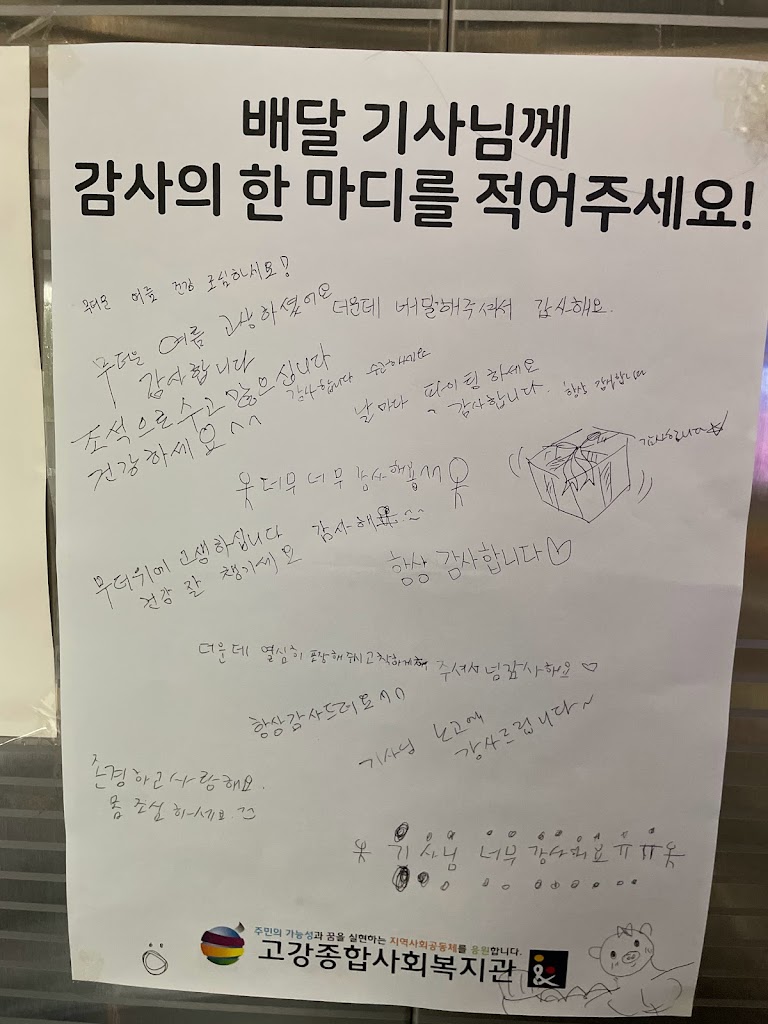 배달 기사님께
감사의 한 마디를 적어주세요!
무더운 여름 건강 조심하시요!
무더운 여름 고생하셨어요
감사합니다
더운데 배달해주셔서 감사해요.
조석으로 수고 많으십니다
건강하세요^^
감사합니다 수고하세요
날마다 화이팅하세요
감사합니다.
항상 감사합니다
감사합니다☆
옷 더무 너무 감사해욥ㅂ 옷
무더위에 고생하십니다
건강 잘 챙기세요
감사해
항상 감사합니다♡
더운데 열심히 포장해주시고 착하게 주셔서 넘감사해요♡
항상감사드려요^^
기사님 노고에
감사드립니다~
존경하고 사랑해요.
몸 조심 하세요.^^
옷 기사님 너무 감사해요 ㅠㅠ 옷
주민의 가능성과 꿈을 실현하는 지역사회공동체를 응원합니다.
고강종합사회복지관